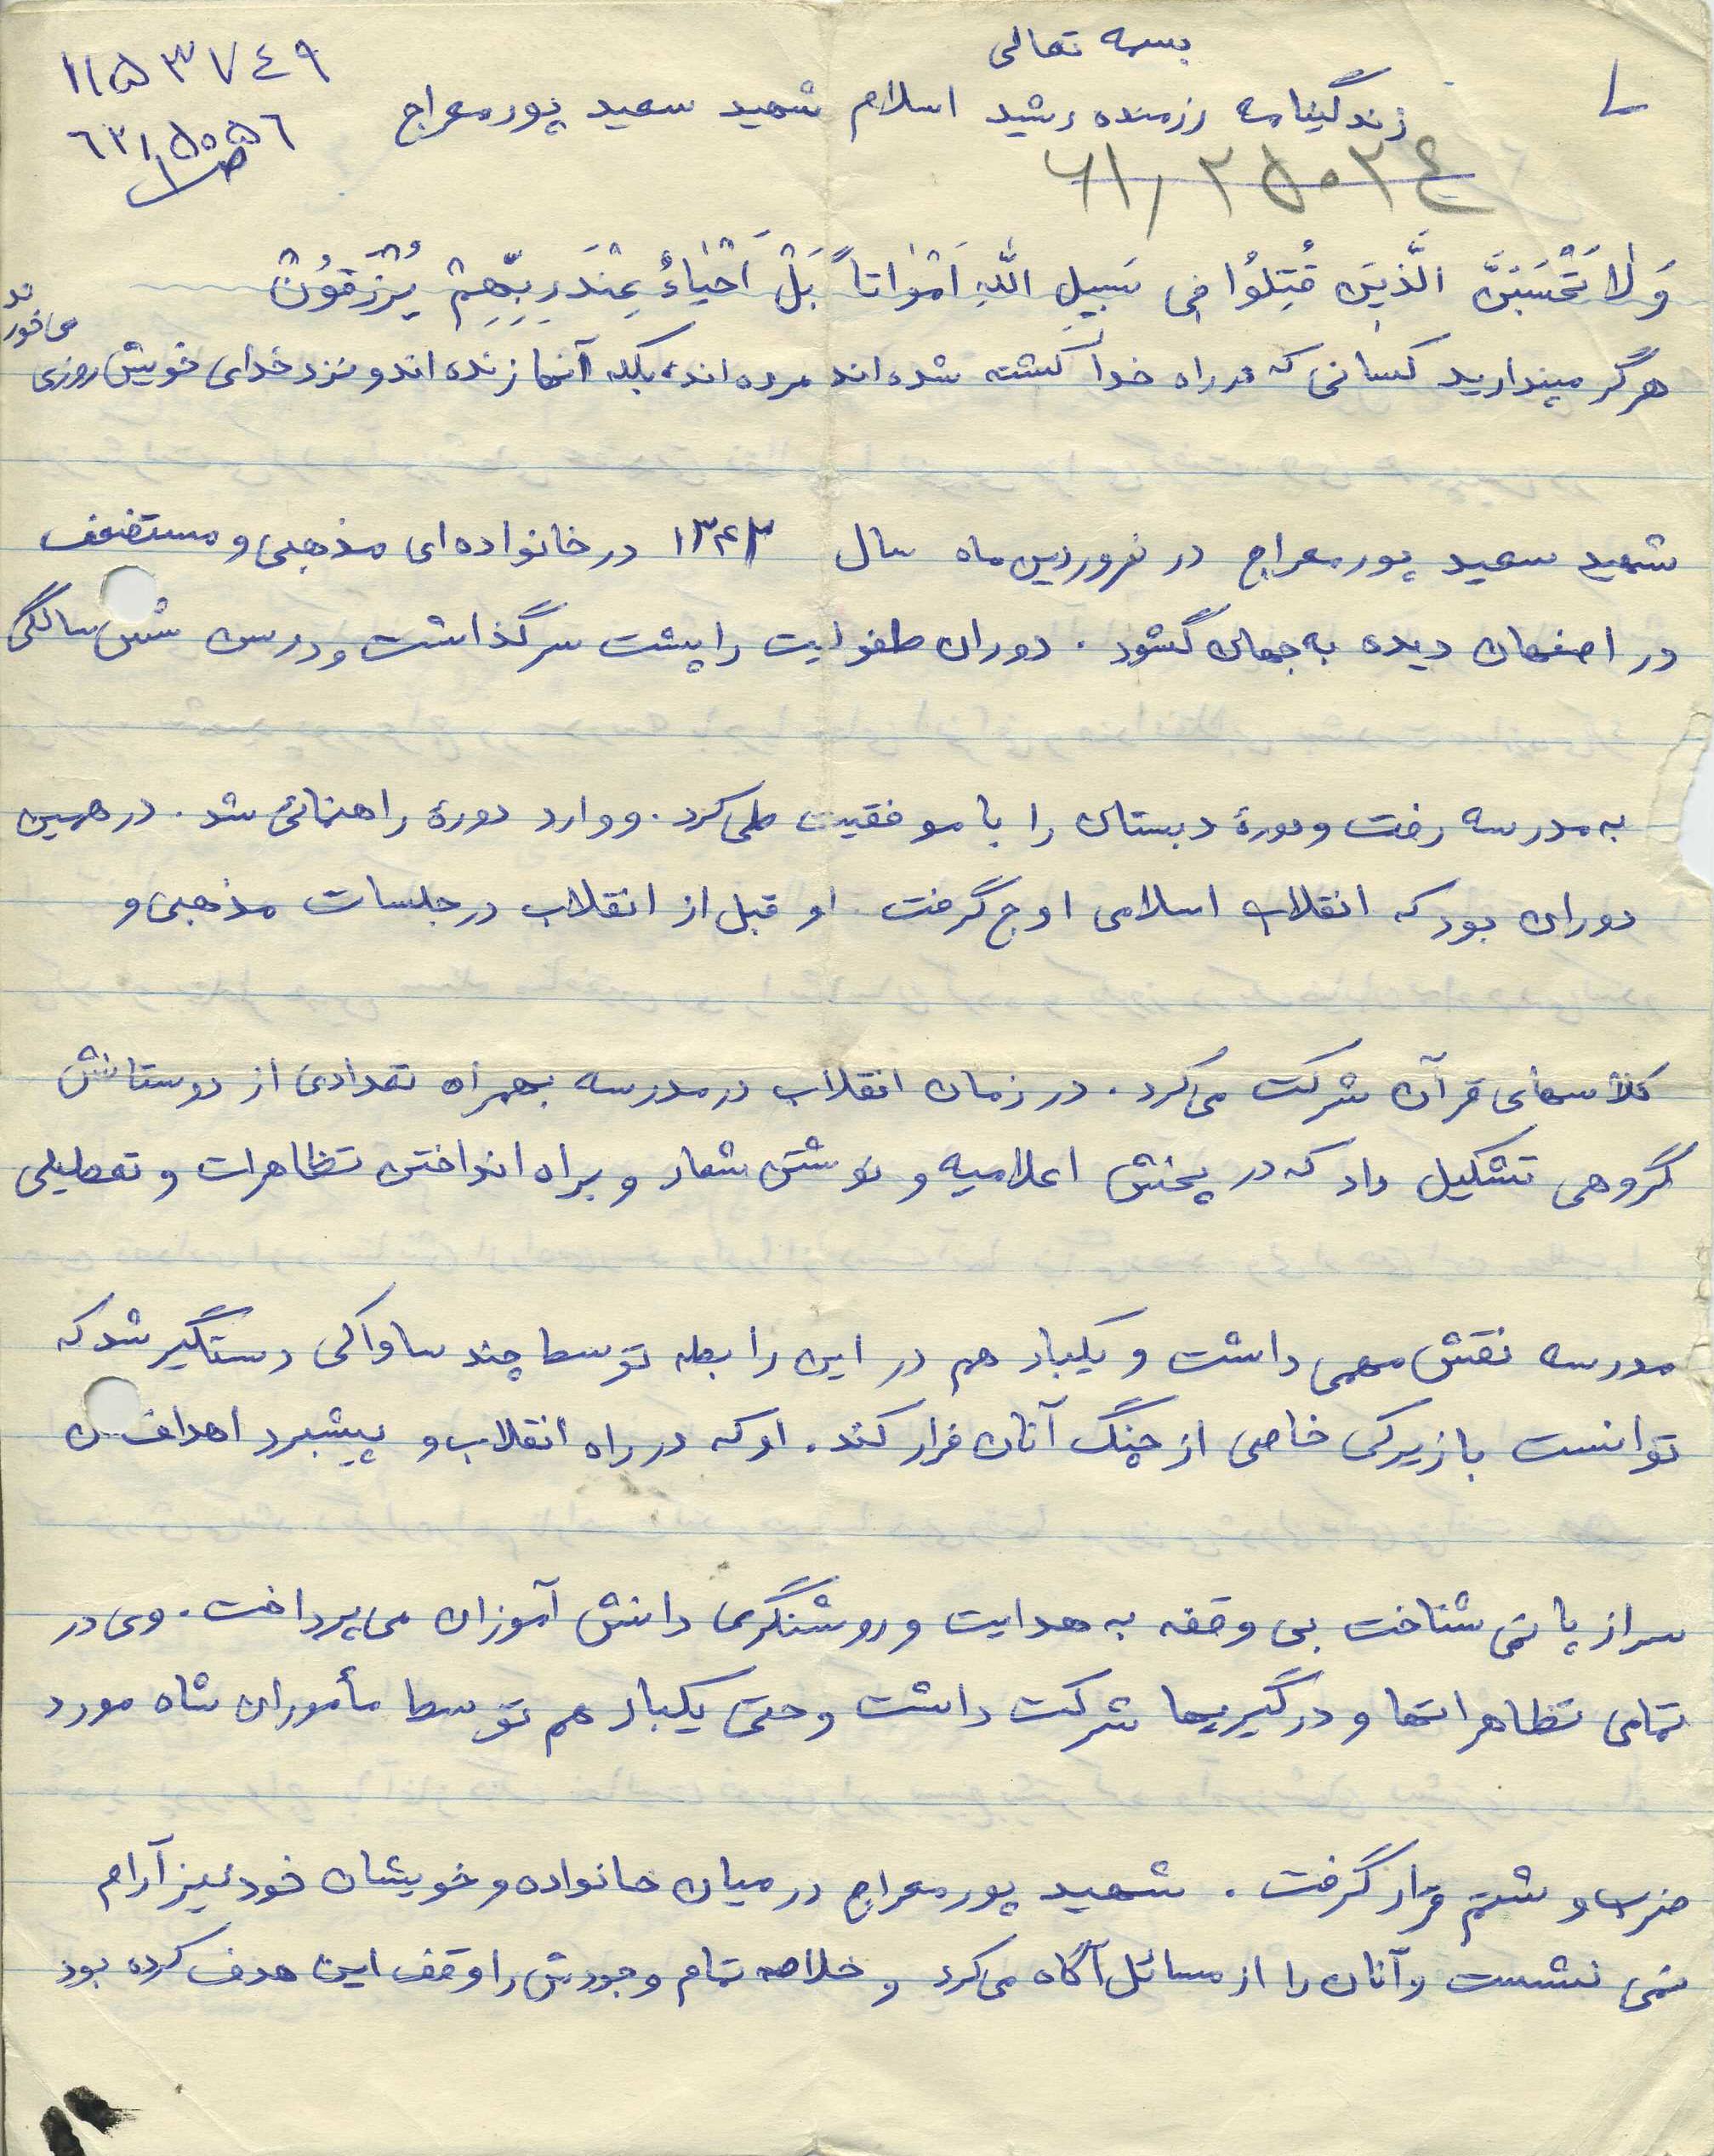 بسمه تعالی
۱۱۵۳۷۴۹
زندگینامه رزمنده رشید اسلام شهید سعید پورمعراج
۶۲/۵۰۵۶
۶۱/۲۵۰۲۴
وَلاٰ تَحْسَبَنَّ الَّذیَن قُتِلوُا فِی سَبیلِ اللهِ اَمْوٰاتاً بَلْ اَحْیٰاءُ عِنْدَ رِبِّهِمْ یُرْزَقوُنْ
هرگز مپندارید کسانی که در راه خدا کشته شده اند مرده اند، بلکه آنها زنده اند و نزد خدای خویش روزی می خورند
شهید سعید پورمعراج در فروردین ماه سال ۱۳۴۳ در خانواده ای مذهبی و مستضعف
در اصفهان دیده به جهان گشود. دوران طفولیت را پشت سر گذاشت و در سن شش سالگی
به مدرسه رفت و دورهٔ دبستان را با موفقیت طی کرد. و وارد دورهٔ راهنمائی شد. در همین
دوران بود که انقلاب اسلامی اوج گرفت. او قبل از انقلاب در جلسات مذهبی و
کلاسهای قرآن شرکت می کرد. در زمان انقلاب در مدرسه بهمراه تعدادی از دوستانش
گروهی تشکیل داد که در پخش اعلامیه و نوشتن شعار و براه انداختن تظاهرات و تعطیلی
مدرسه نقش مهمی داشت و یکبار هم در این رابطه توسط چند ساواکی دستگیر شد که
توانست با زیرکی خاصی از چنگ آنان فرار کند. او که در راه انقلاب و پیشبرد اهداف
سر از پا نمی شناخت بی وقفه به هدایت و روشنگری دانش آموزان می پرداخت. وی در
تمامی تظاهراتها و درگیریها شرکت داشت و حتی یکبار هم توسط مأموران شاه مورد
ضرب و شتم قرار گرفت. شهید پورمعراج در میان خانواده و خویشان خود نیز آرام
نمی نشست و آنان را از مسائل آگاه می کرد و خلاصه تمام وجودش را وقف این هدف کرده بود